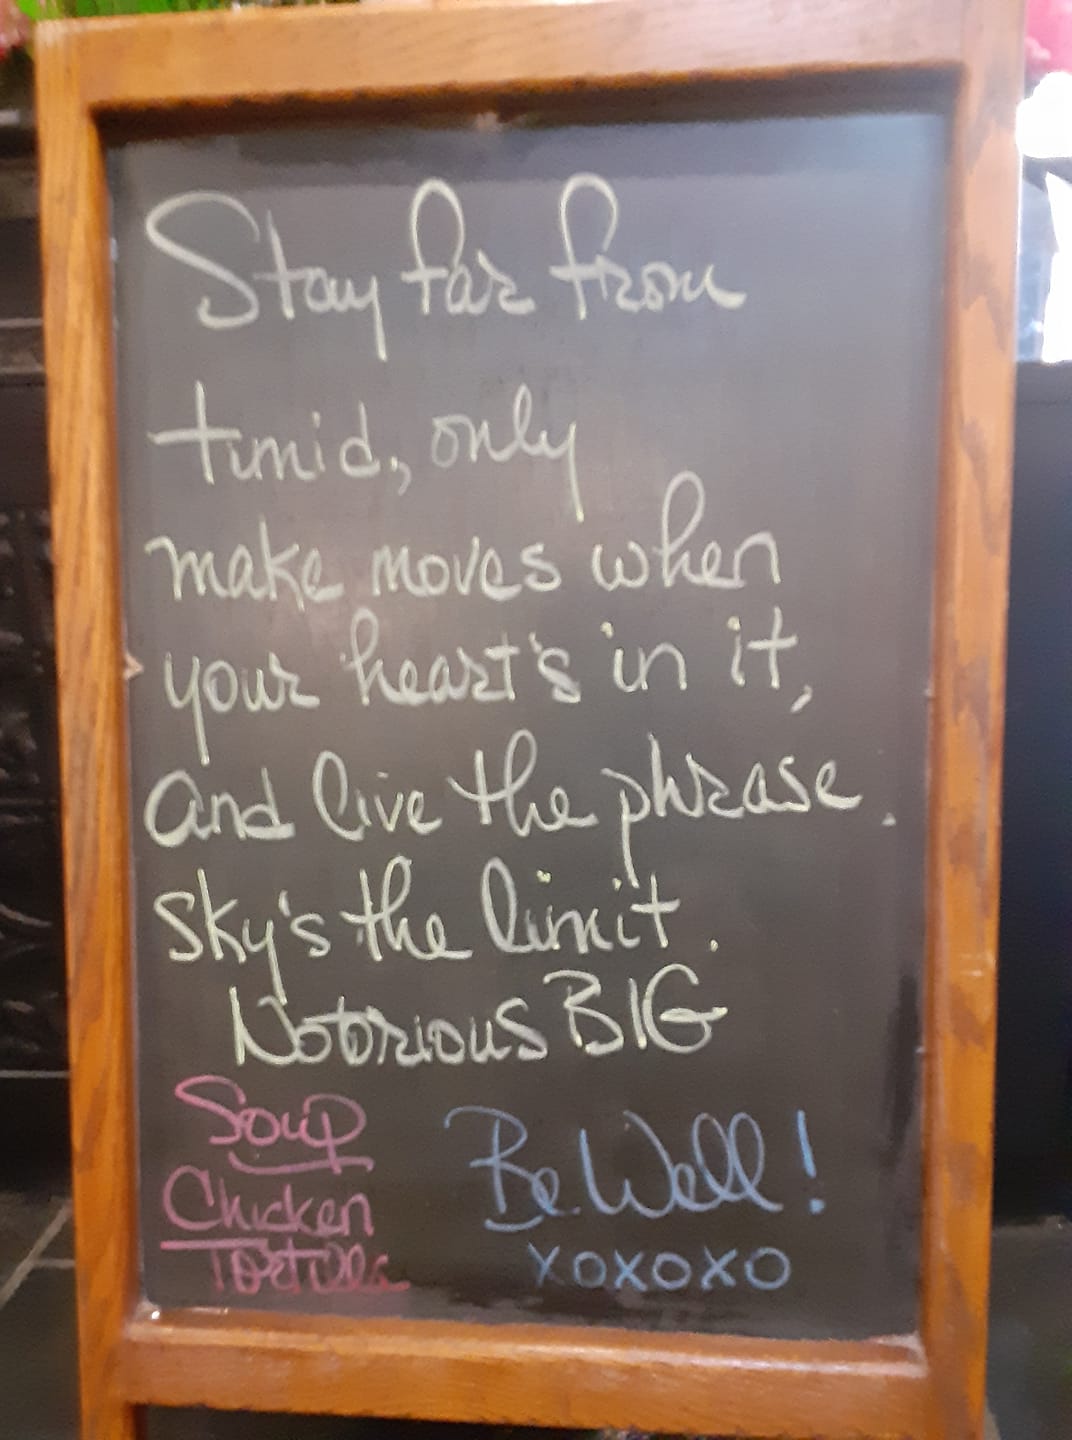 Stay far from
timid, only
make moves when
your heart's in it,
and live the phrase.
Sky's the limit.
Notorious BIG
Soup
Chicken
Tortilla
Be Well!
xoxoxo